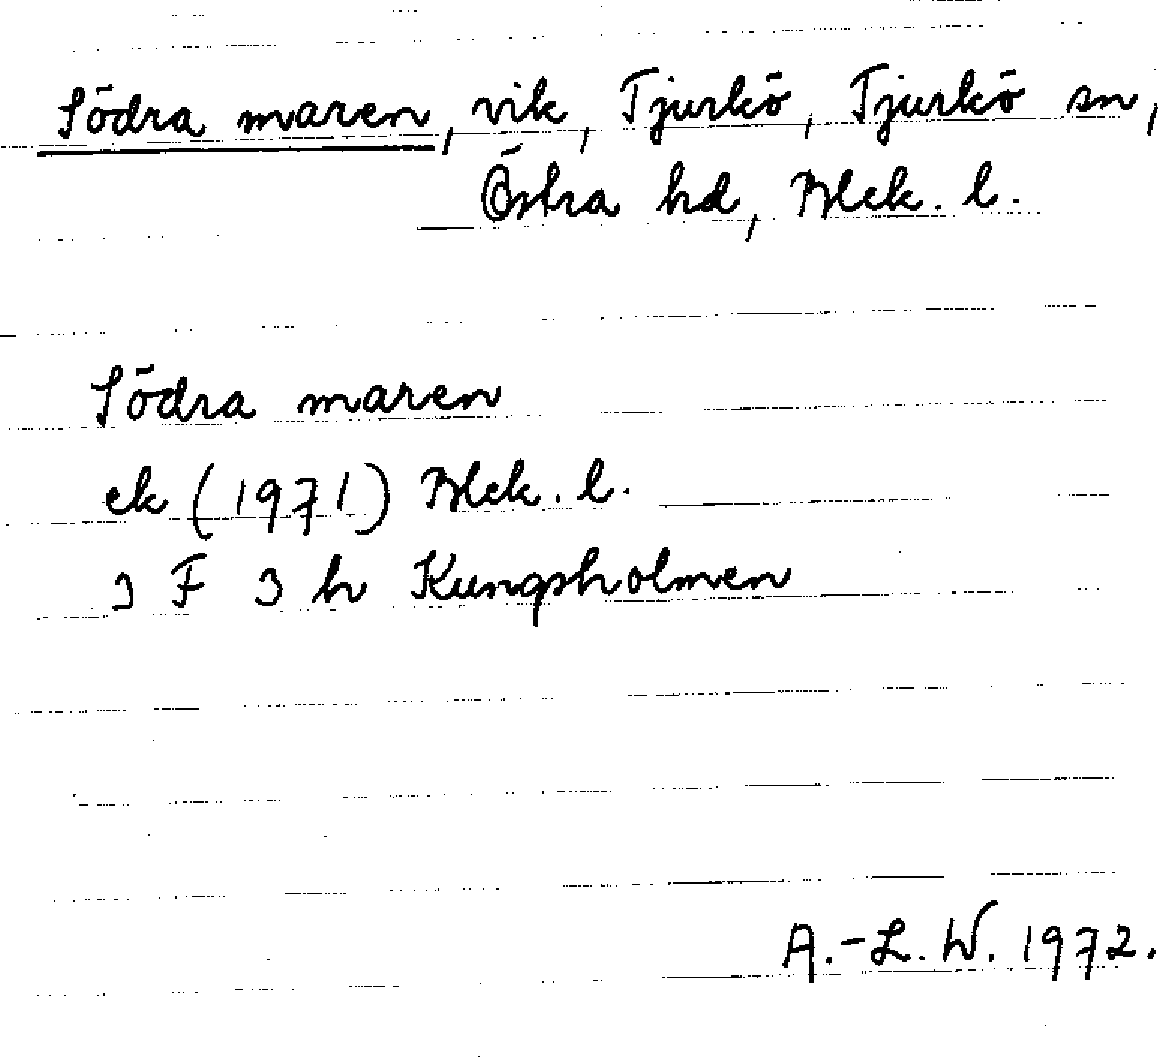 Södra maren, vik, Tjurkö, Tjurkö sn,
Östra hd, Blek. l.
Södra maren
ek (1971) Blek. l.
3 F 3 h Kungsholmen
A.-L. W. 1972.